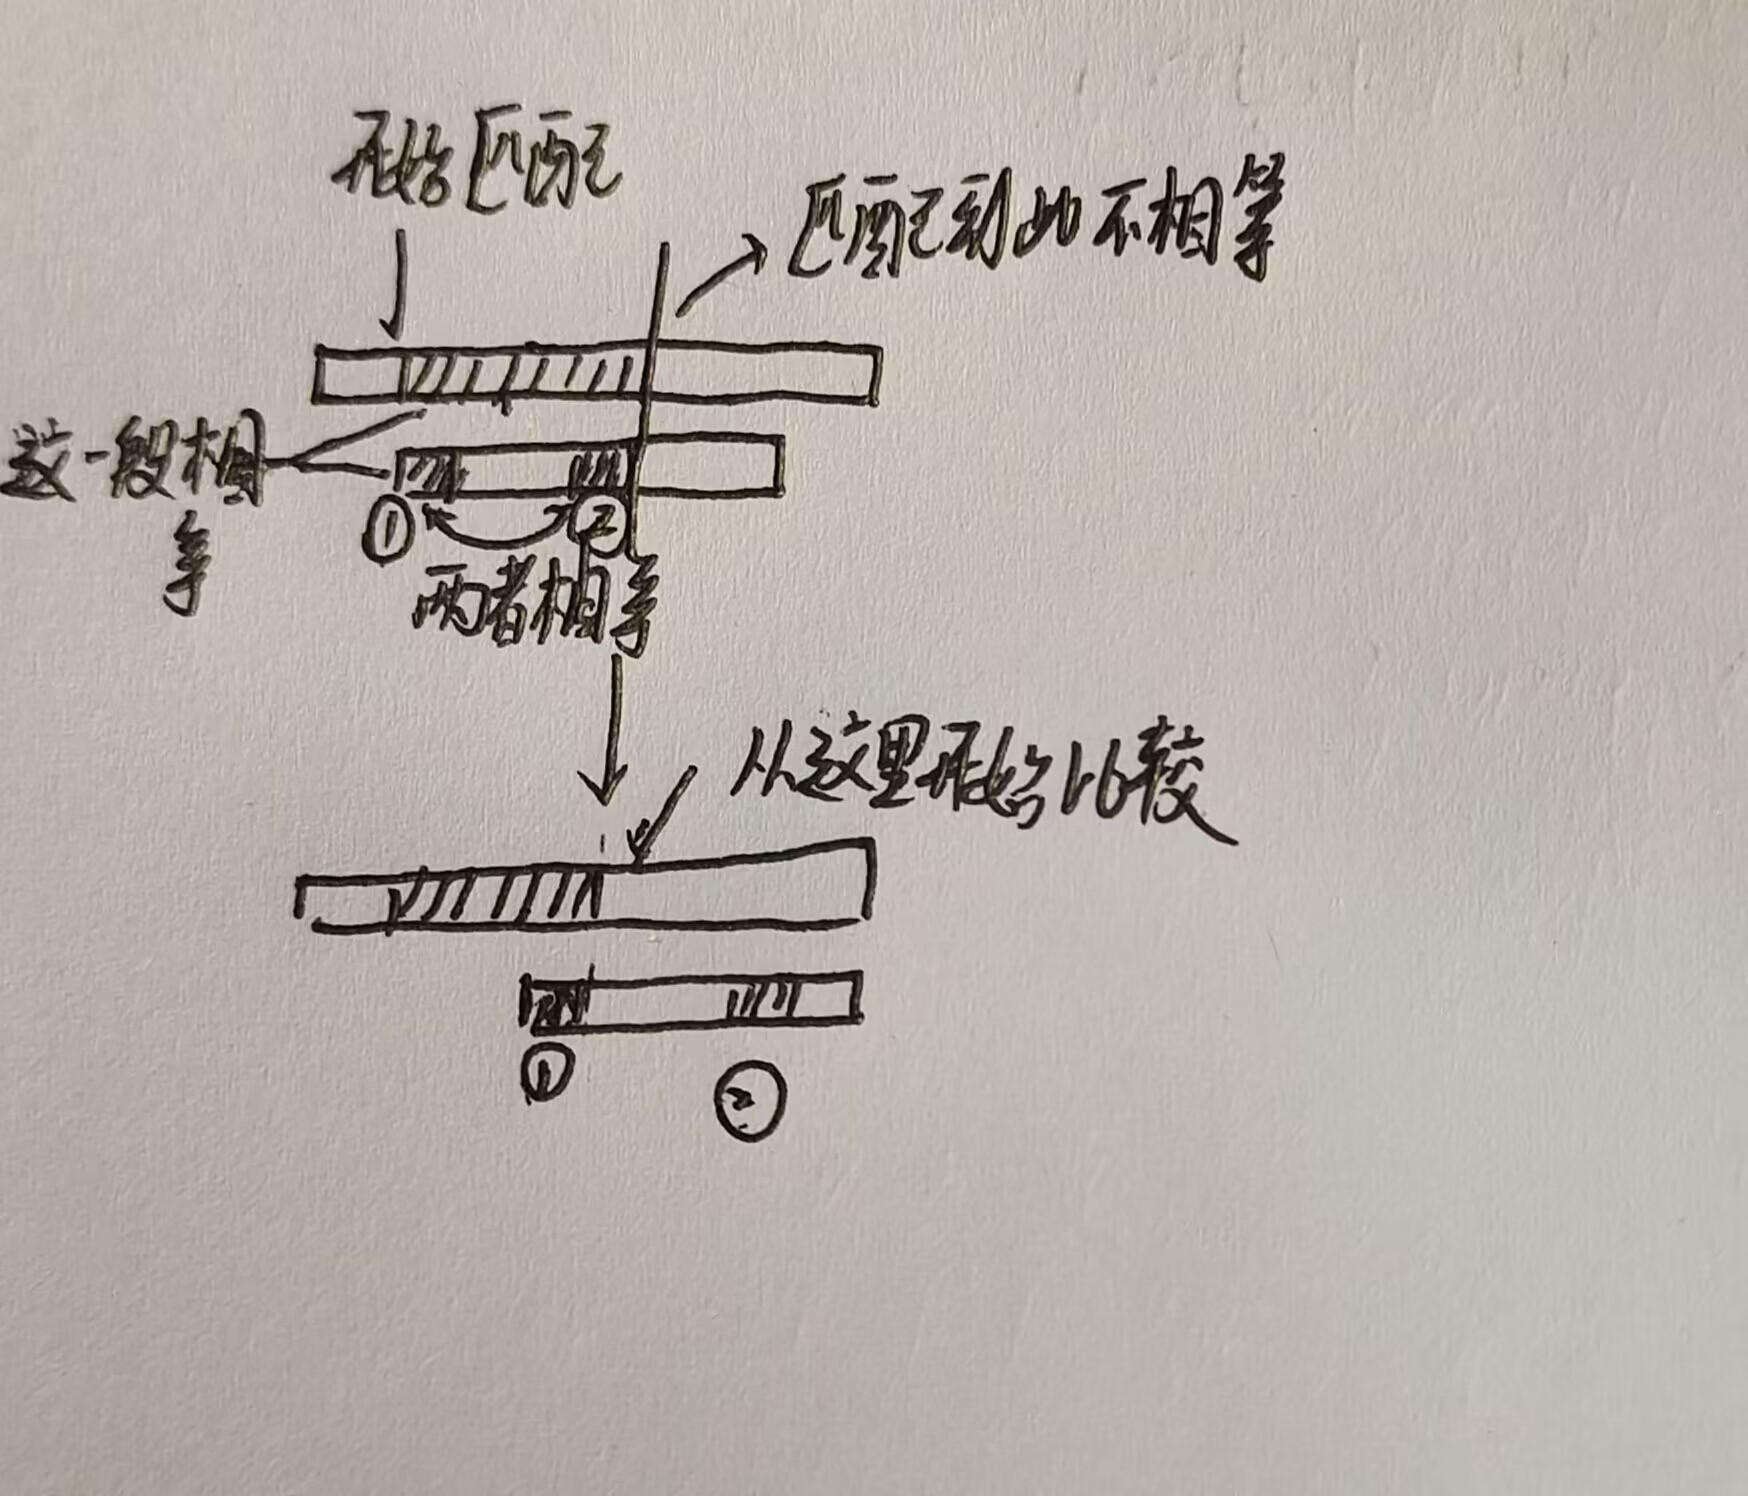 开始匹配
匹配到此不相等
这一段相
等
① ②
两者相等
从这里开始比较
①
②